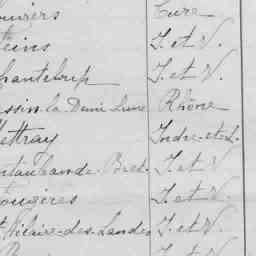 ougers Eure
teins I. et V.
Chanteloup I. et V.
essin la Demi Lune Rhône
ettray Indre-et-L.
ontauban de Bret. I. et V.
ougères I. et V.
t Hilaire-des-Landes I. et V.
I. et V.